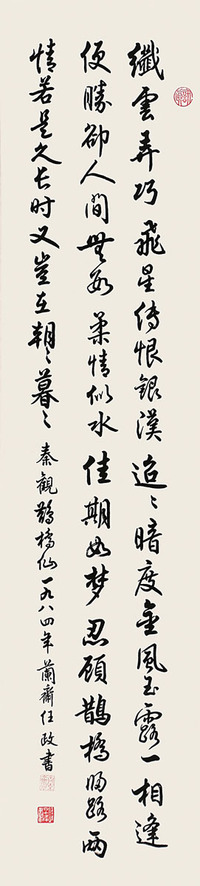 纖雲弄巧飛星傳恨銀漢迢〻暗度金風玉露一相逢
便勝卻人間無數柔情似水佳期如夢忍顧鵲橋歸路兩
情若是久长时又豈在朝〻暮〻
秦觀鵲橋仙一九八四年蘭齋任政書